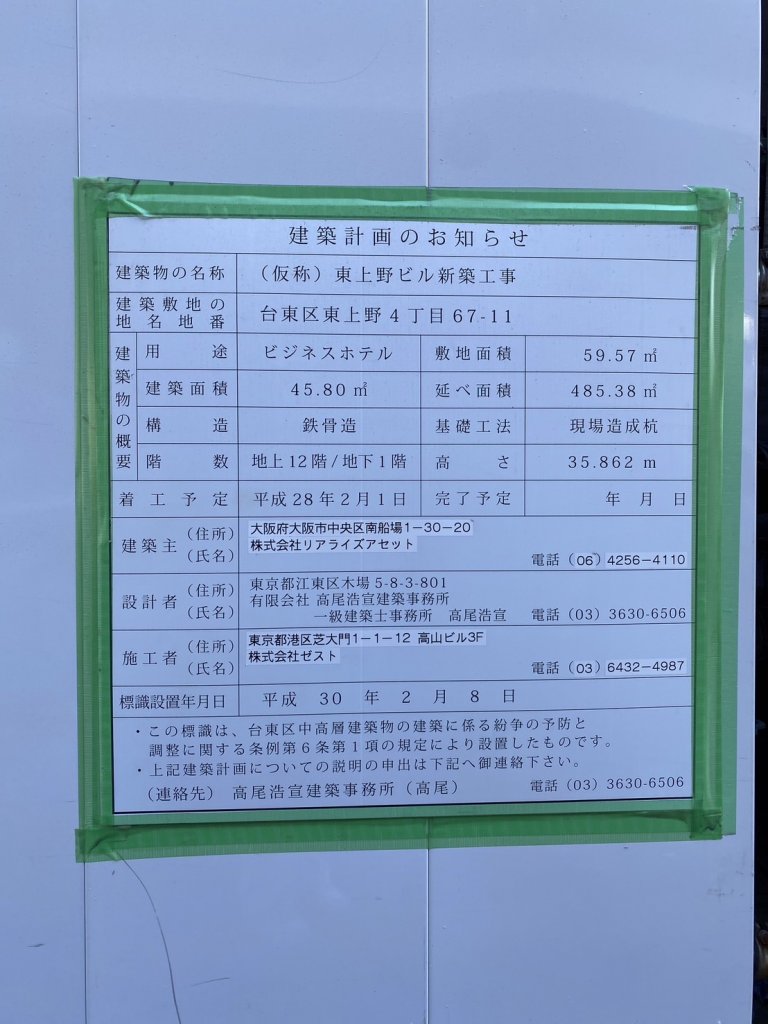 建築計画のお知らせ
建築物の名称 （仮称）東上野ビル新築工事
建築敷地の地名地番 台東区東上野4丁目67-11
建築物の概要
用途 ビジネスホテル 敷地面積 59.57㎡
建築面積 45.80㎡ 延べ面積 485.38㎡
構造 鉄骨造 基礎工法 現場造成杭
階数 地上12階/地下1階 高さ 35.862m
着工予定 平成28年2月1日 完了予定 年 月 日
建築主（住所） 大阪府大阪市中央区南船場1－30－20
（氏名） 株式会社リアライズアセット
電話（06）4256－4110
設計者（住所） 東京都江東区木場5-8-3-801
（氏名） 有限会社 高尾浩宣建築事務所
一級建築士事務所 高尾浩宣 電話（03）3630-6506
施工者（住所） 東京都港区芝大門1－1－12 高山ビル3F
（氏名） 株式会社ゼスト
電話（03）6432－4987
標識設置年月日 平成 30 年 2 月 8 日
・この標識は、台東区中高層建築物の建築に係る紛争の予防と
調整に関する条例第6条第1項の規定により設置したものです。
・上記建築計画についての説明の申出は下記へ御連絡下さい。
（連絡先） 高尾浩宣建築事務所（高尾） 電話（03）3630-6506